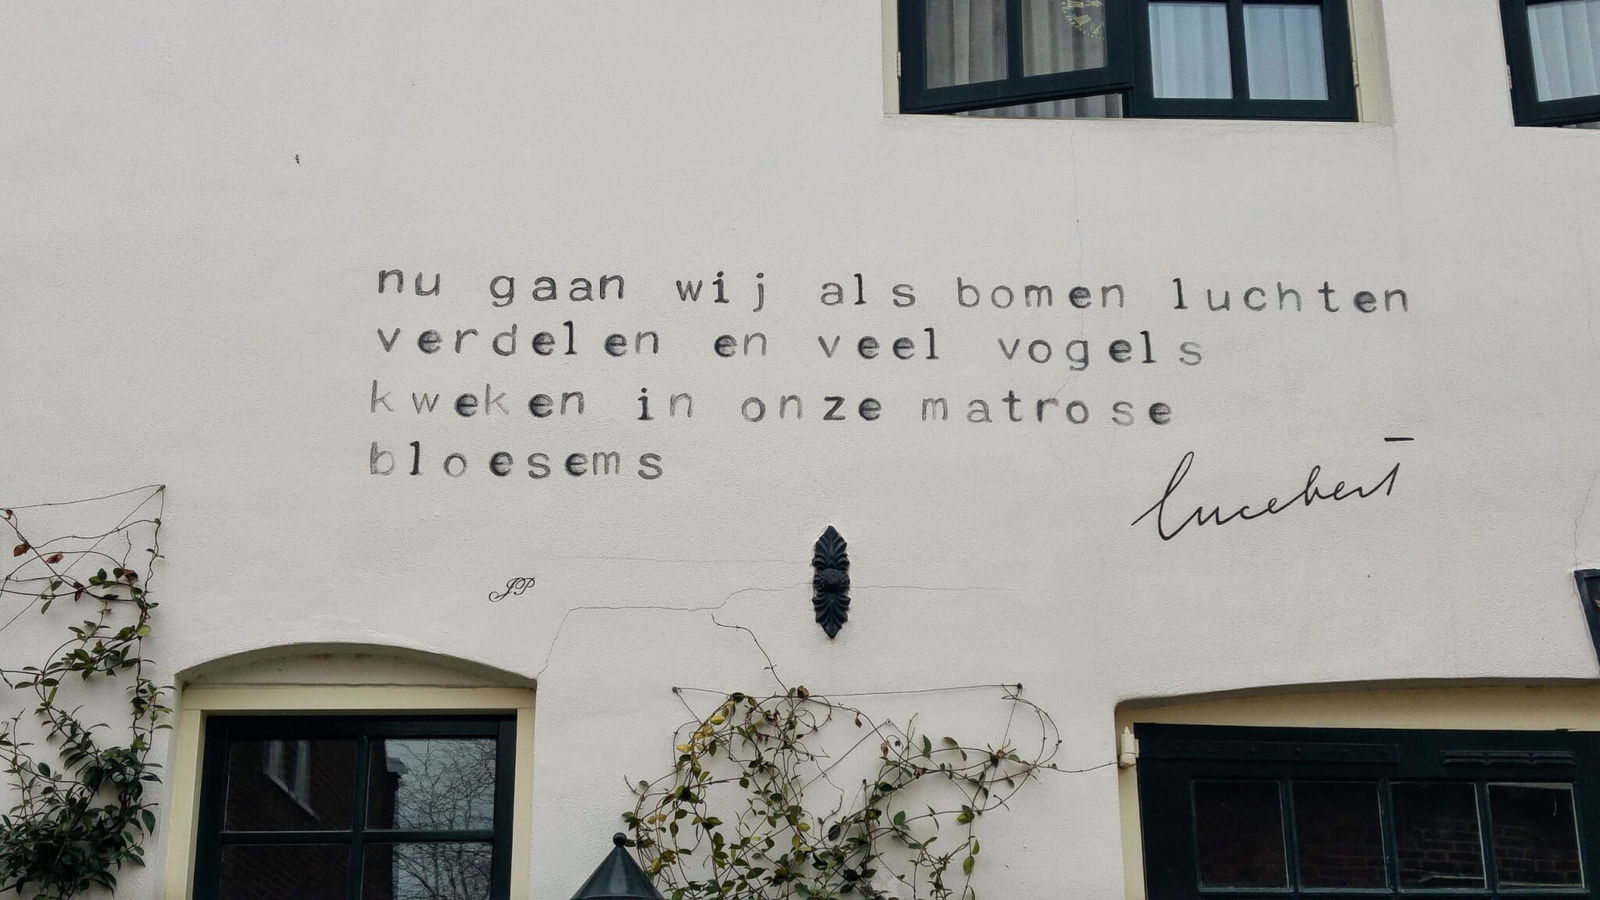 nu gaan wij als bomen luchten
verdelen en veel vogels
kweken in onze matrose
bloesems
lucebert
JP